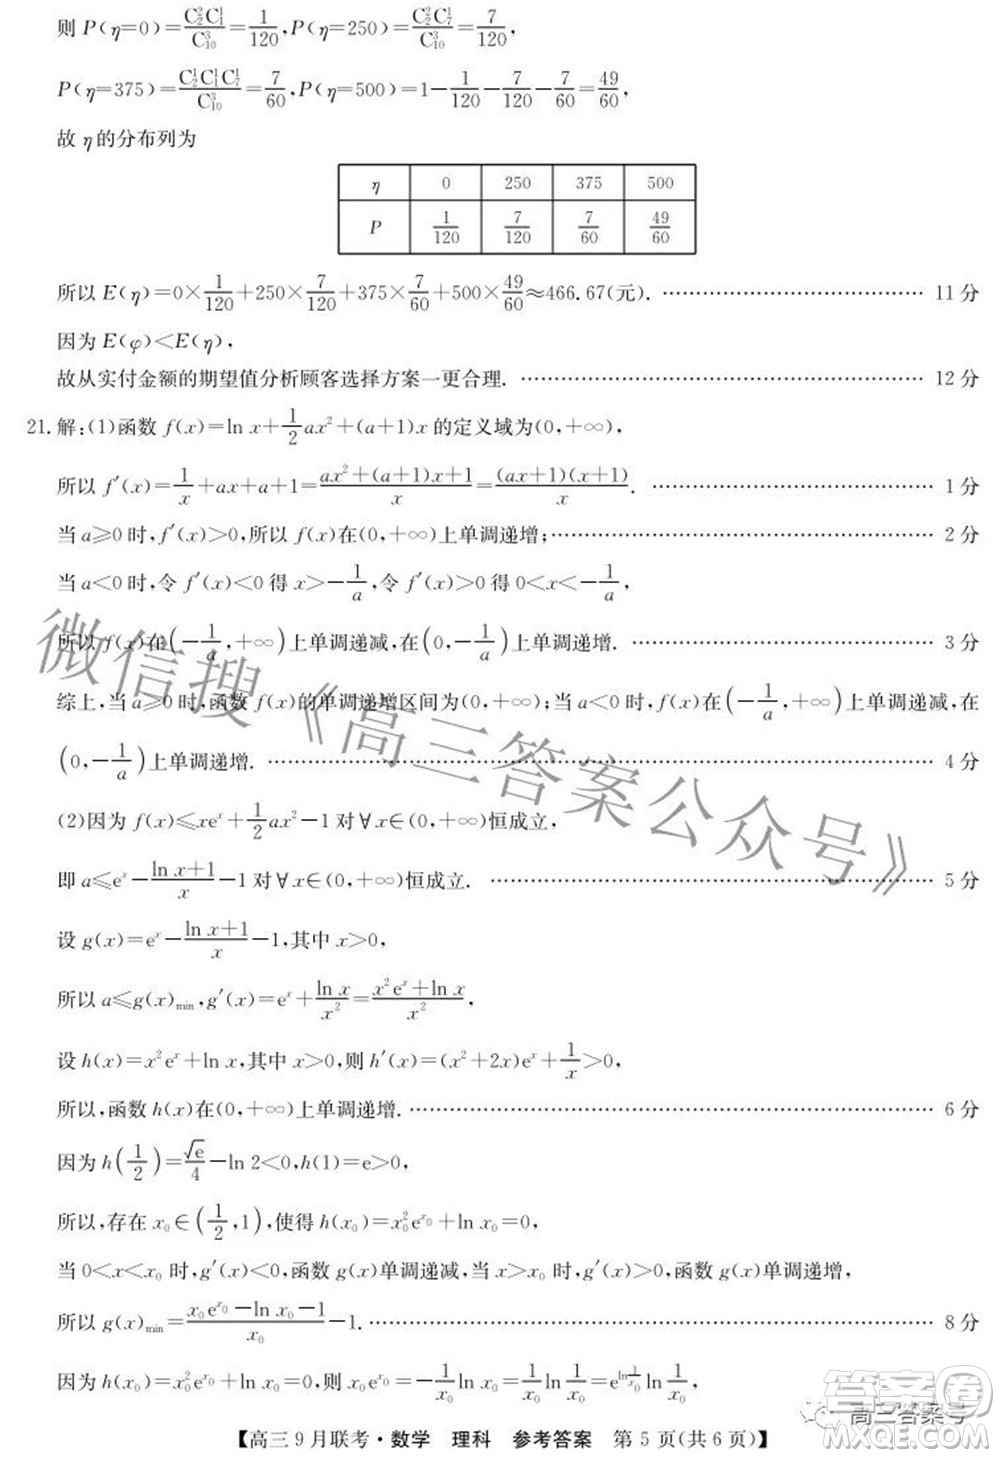 则 P(η=0)=C₂²C₁¹/C₁₀³=1/120,P(η=250)=C₂²C₇¹/C₁₀³=7/120,
P(η=375)=C₂¹C₁¹C₇¹/C₁₀³=7/60,P(η=500)=1-1/120-7/120-7/60=49/60,
故 η 的分布列为
η 0 250 375 500
P 1/120 7/120 7/60 49/60
所以 E(η)=0×1/120+250×7/120+375×7/60+500×49/60≈466.67(元). …… 11 分
因为 E(φ)<E(η),
故从实付金额的期望值分析顾客选择方案一更合理. …… 12 分
21.解:(1)函数 f(x)=ln x+1/2ax²+(a+1)x 的定义域为(0,+∞),
所以 f′(x)=1/x+ax+a+1=(ax²+(a+1)x+1)/x=(ax+1)(x+1)/x. …… 1 分
当 a≥0 时,f′(x)>0,所以 f(x)在(0,+∞)上单调递增;…… 2 分
当 a<0 时,令 f′(x)<0 得 x>-1/a,令 f′(x)>0 得 0<x<-1/a,
所以 f(x)在(-1/a,+∞)上单调递减,在(0,-1/a)上单调递增. …… 3 分
综上,当 a≥0 时,函数 f(x)的单调递增区间为(0,+∞);当 a<0 时,f(x)在(-1/a,+∞)上单调递减,在
(0,-1/a)上单调递增. …… 4 分
(2)因为 f(x)≤xeˣ+1/2ax²-1 对∀x∈(0,+∞)恒成立,
即 a≤eˣ-(ln x+1)/x-1 对∀x∈(0,+∞)恒成立. …… 5 分
设 g(x)=eˣ-(ln x+1)/x-1,其中 x>0,
所以 a≤g(x)min,g′(x)=eˣ+ln x/x²=(x²eˣ+ln x)/x²,
设 h(x)=x²eˣ+ln x,其中 x>0,则 h′(x)=(x²+2x)eˣ+1/x>0,
所以,函数 h(x)在(0,+∞)上单调递增. …… 6 分
因为 h(1/2)=√e/4-ln 2<0,h(1)=e>0,
所以,存在 x₀∈(1/2,1),使得 h(x₀)=x₀²e^x₀+ln x₀=0,
当 0<x<x₀ 时,g′(x)<0,函数 g(x)单调递减,当 x>x₀ 时,g′(x)>0,函数 g(x)单调递增,
所以 g(x)min=(x₀e^x₀-ln x₀-1)/x₀-1. …… 8 分
因为 h(x₀)=x₀²e^x₀+ln x₀=0,则 x₀e^x₀=-1/x₀ln x₀=1/x₀ln 1/x₀=e^(ln 1/x₀)ln 1/x₀,
【高三 9 月联考·数学 理科 参考答案 第 5 页(共 6 页)】
微信搜《高三答案公众号》
高三答案号
答案圈